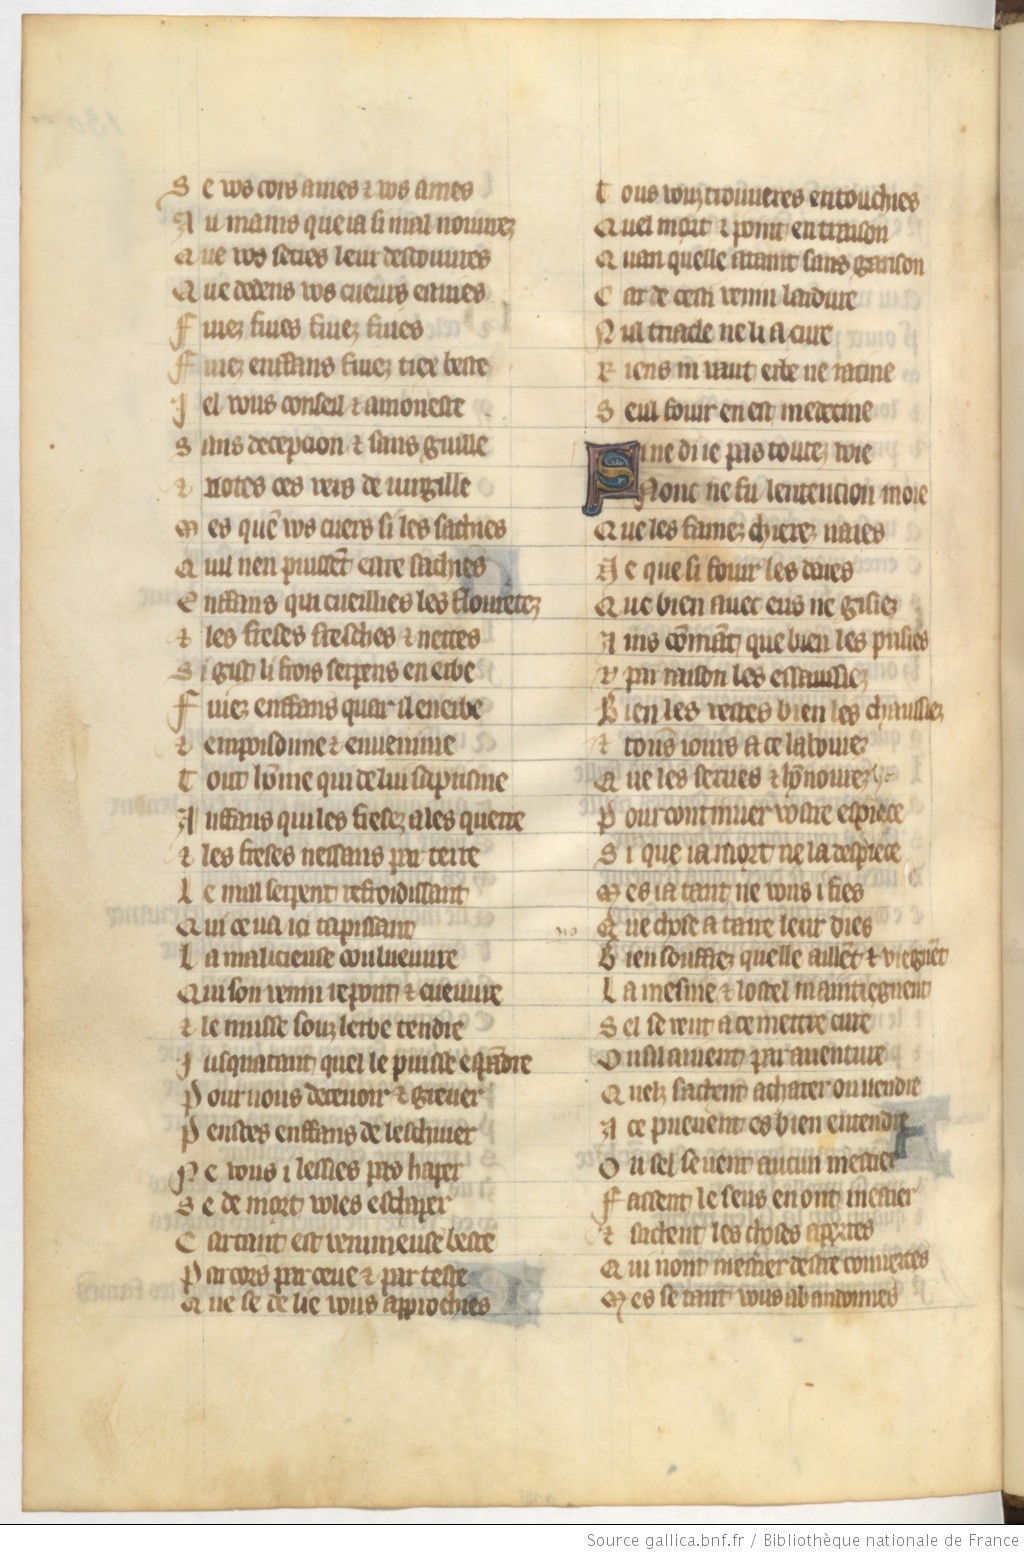 Se vos cors ames & vos ames
Au mains que ia si mal nouurez
Que vos secres leur descouures
Que dedens vos cueurs estuies
Fuiez fuies fuiez fuies
Fuiez enffans fuiez tiex beste
Jel vous conseil & amoneste
Sans decepcion & sans guille
& notes ces vers de uirgille
Mes quē vos cuers si les sachies
Quil nen puissēt estre sachies
Enffans qui cueillies les flouretez
& les freses fresches & nettes
Si gist li frois serpens en erbe
Fuiez enffans quar il enerbe
& empoisonne & enuenime
Tout hōme qui de lui saprisme
Anffans qui les fresez ales querre
& les freses nessans par terre
Le mal serpent refroidissant
Qui ce ua ici tapissant
La malicieuse couleuure
Qui son venin repont & cueuure
& le musse souz lerbe tendre
Jusquatant quel le puisse espādre
Pour nous deceuoir & greuer
Penses enffans de leschiuer
Ne vous i lessies pas haper
Se de mort voles eschaper
Car tant est venimeuse beste
Par cors par ceue & par teste
Que se de lie vous approchies
Tous vouz trouueres entouchies
Quel mort & point en traison
Quan quelle ataint sans garison
Car de cesti venin lardure
Nul triacle ne li a cure
Riens ni vaut erbe ne racine
Seul fouir en est medecine
Si ne di ie pas toutez voie
Nonc ne fu lentencion moie
Que les famez chierez naies
Ne que si fouir les doies
Que bien auec eus ne gisiez
Ains cōmāt que bien les prisies
& par raison les essaussiez
Bien les vestes bien les chaussiez
& tous iours a ce labourez
Que les serues & hōnourez
Pour continuer vostre espiece
Si que la mort ne la despiece
Mes ia tant ne vous i fies
Que chose a taire leur dies
Bien souffrez quelle aillēt & viegnēt
La mesme & lostel maintiegnent
Sel seuent a ce mettre cure
Ou sil auient par auenture
Quelz sachent achater ou uendre
A ce pueuent es bien entendre
Ou sel seuent aucun mestier
Facent le seus en ont mestier
& sachent les choses apertes
Qui nont mestier destre couuertes
Mes se tant vous abandonnes
Source gallica.bnf.fr / Bibliothèque nationale de France